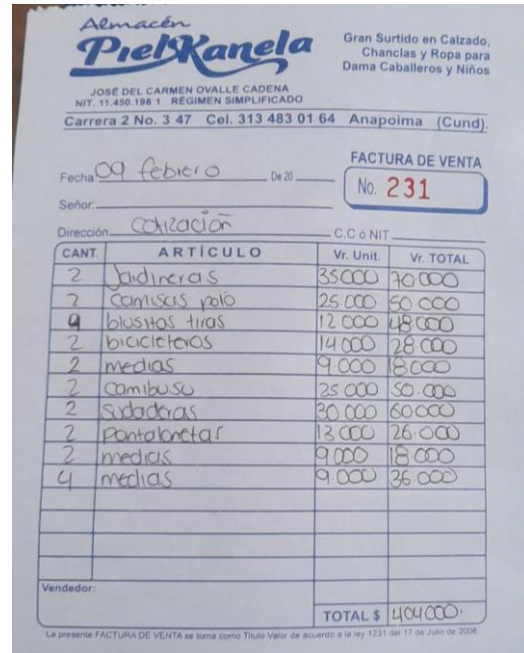 Almacén
PielKanela
Gran Surtido en Calzado,
Chanclas y Ropa para
Dama Caballeros y Niños
JOSÉ DEL CARMEN OVALLE CADENA
NIT. 11.450.198 1 RÉGIMEN SIMPLIFICADO
Carrera 2 No. 3 47 Cel. 313 483 01 64 Anapoima (Cund).
FACTURA DE VENTA
No. 231
Fecha 09 febrero De 20
Señor:
Dirección cotización C.C ó NIT
CANT. ARTÍCULO Vr. Unit. Vr. TOTAL
2 Jardineras 35000 70000
2 Camisas polo 25.000 50 000
4 blusitas tiras 12 000 48.000
2 bicicleteros 14000 28.000
2 medias 9.000 18000
2 camibuso 25 000 50.000
2 sudaderas 30.000 60000
2 Pantalonetas 13 000 26.000
2 medias 9000 18.000
4 medias 9.000 36.000
Vendedor:
TOTAL $ 404000.
La presente FACTURA DE VENTA se toma como Titulo Valor de acuerdo a la ley 1231 del 17 de Julio de 2008